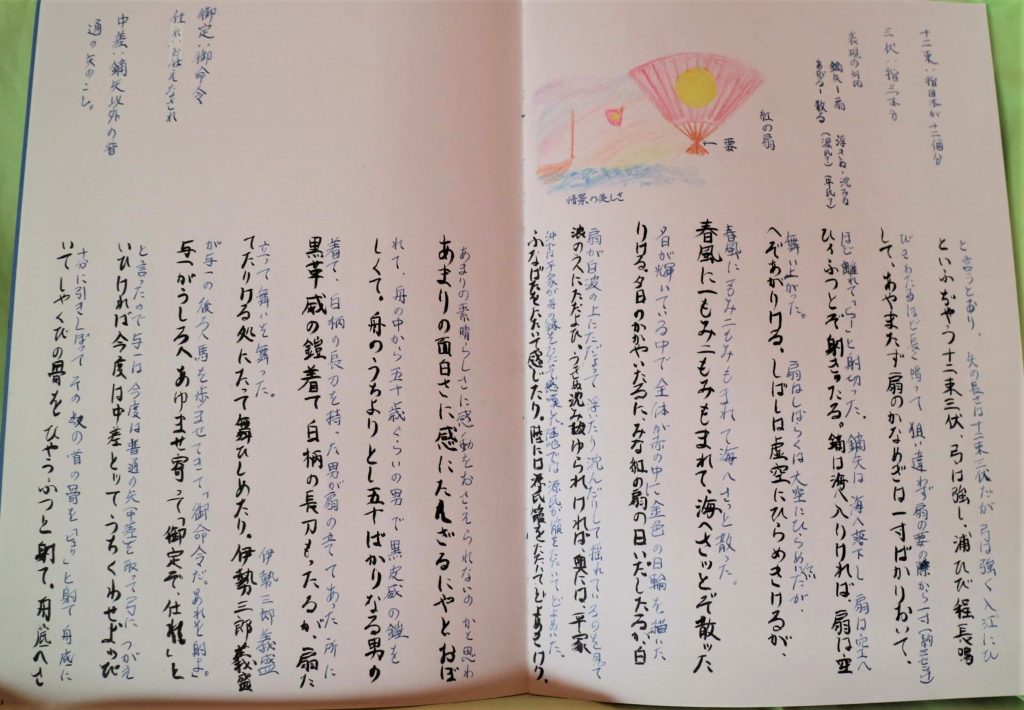 十二束：指四本が十二個分
三伏：指三本分
表現の対比
鏑矢ー扇
あがるー散る
浮きぬ・沈みぬ
(源氏？)(平氏？)
紅の扇
要
情景の美しさ
と言うとおり、矢の長さは十二束三伏だが弓は強く入江にひ
といふぢやう十二束三伏、弓は強し、浦ひびく程長鳴
びきわたるほど長く鳴って狙い違わず扇の要の際から一寸
して、あやまたず扇のかなめぎは一寸ばかりおいて、
ほど離れて「ひふっ」と射切った。鏑矢は海へ落下し扇は空へ
ひィふつとぞ射きッたる。鏑は海へ入りければ、扇は空
舞い上がった。扇はしばらくは大空にひらめいたが、
へぞあがりける。しばしは虚空にひらめきけるが、
春風に一もみ二もみもまれて海へさっと散った。
春風に一もみ二もみもまれて、海へさッとぞ散ッた
夕日が輝いている中で全体が赤の中に金色の日輪を描いた
りける。夕日のかかやいたるに、みな紅の扇の日いだしたるが、白
扇が白波の上にただよって浮いたり沈んだりして揺れているのを見て
浪のうへにただよひ、うきぬ沈みぬゆられければ、奥には平家
沖では平家が舟の縁をたたいて感嘆、陸地では源氏が箙をたたいてどよめいた。
ふなばたをたたいて感じたり。陸には源氏箙をたたいてどよめきけり。
御定：御命令
仕れ：お仕えなされ
中差：鏑矢以外の普
通の矢のこと。
あまりの素晴らしさに感動をおさえられないのかと思わ
あまりの面白さに感にたへざるにやとおぼ
れて、舟の中から五十歳ぐらいの男で黒皮威の鎧を
しくて、舟のうちよりとし五十ばかりなる男の
着て、白柄の長刀を持った男が扇の立ててあった所に
黒革威の鎧着て白柄の長刀もッたるが、扇た
立って舞いを舞った。伊勢三郎義盛
てたりける処にたッて舞ひしめたり。伊勢三郎義盛
が与一の後ろへ馬を歩ませてきて「御命令だ、あれを射よ。」
与一がうしろへあゆませ寄って「御定ぞ、仕れ」と
と言ったので与一は今度は普通の矢中差を取って弓につがえ
いひければ今度は中差とッてうちくわせ、よっぴ
十分に引きしぼってその奴の首の骨を「ひょう」と射て舟底に
いてしやくびの骨をひやうふつと射て、舟底へさ